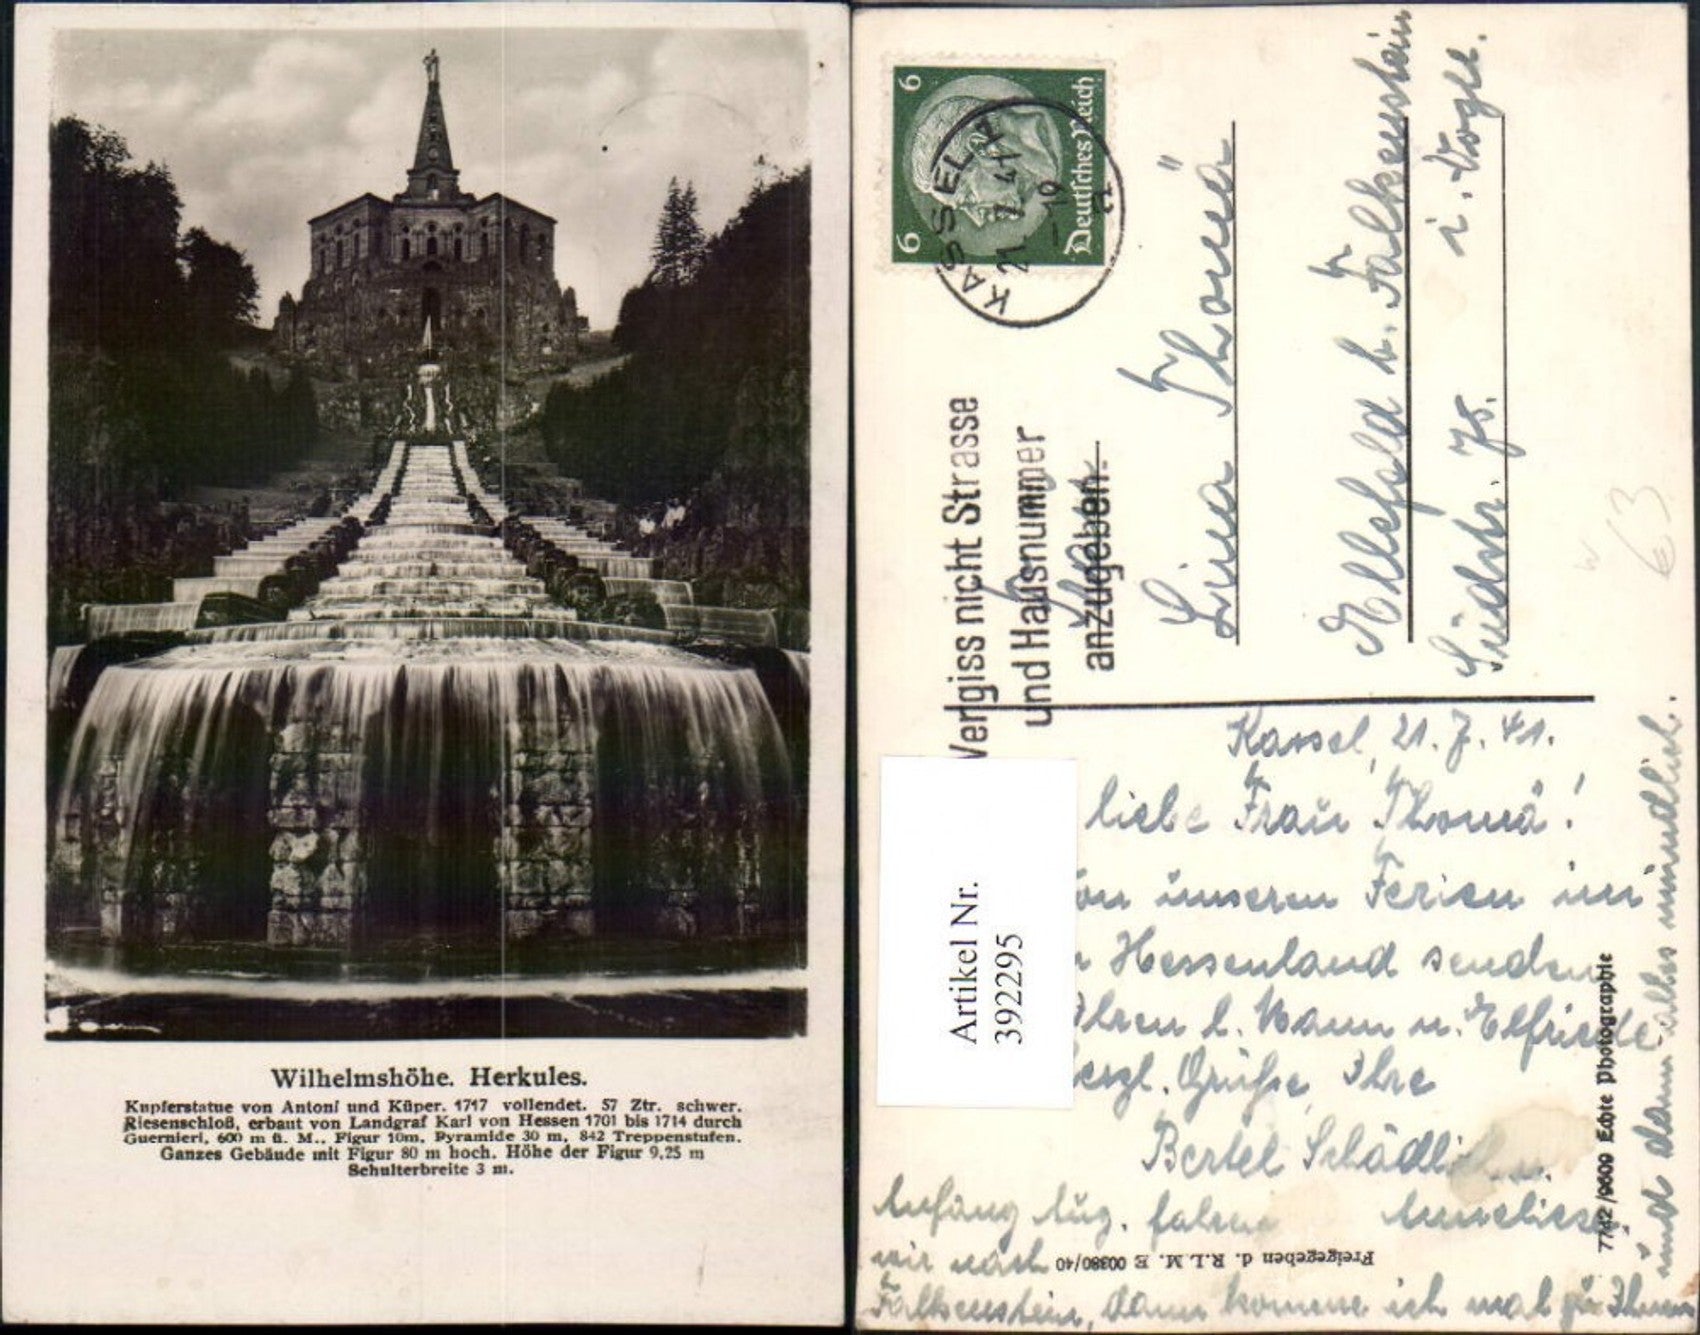 Wilhelmshöhe. Herkules.
Kupferstatue von Antoni und Küper. 1717 vollendet. 57 Ztr. schwer.
Riesenschloß, erbaut von Landgraf Karl von Hessen 1701 bis 1714 durch
Guernieri, 600 m ü. M., Figur 10m, Pyramide 30 m, 842 Treppenstufen.
Ganzes Gebäude mit Figur 80 m hoch. Höhe der Figur 9,25 m
Schulterbreite 3 m.
6 6
Deutsches Reich
KASSEL
21.7.41
Vergiss nicht Strasse
und Hausnummer
anzugeben.
Lina Thomä
Ellefeld b. Falkenstein
i. Vogtl.
Südstr. 78.
63
Artikel Nr.
392295
Kassel, 21. 7. 41.
liebe Frau Thomä!
unseren Ferien im
Hessenland senden
Ihren l. Mann u. Elfriede
herzl. Grüße, Ihre
Bertel Schädlich u.
Anneliese
Anfang Aug. fahren
wir nach
Falkenstein, dann komme ich mal zu Ihnen
und dann alles mündlich.
Freigegeben d. R.L.M. E 00380/40
7742/9609 Echte Photographie